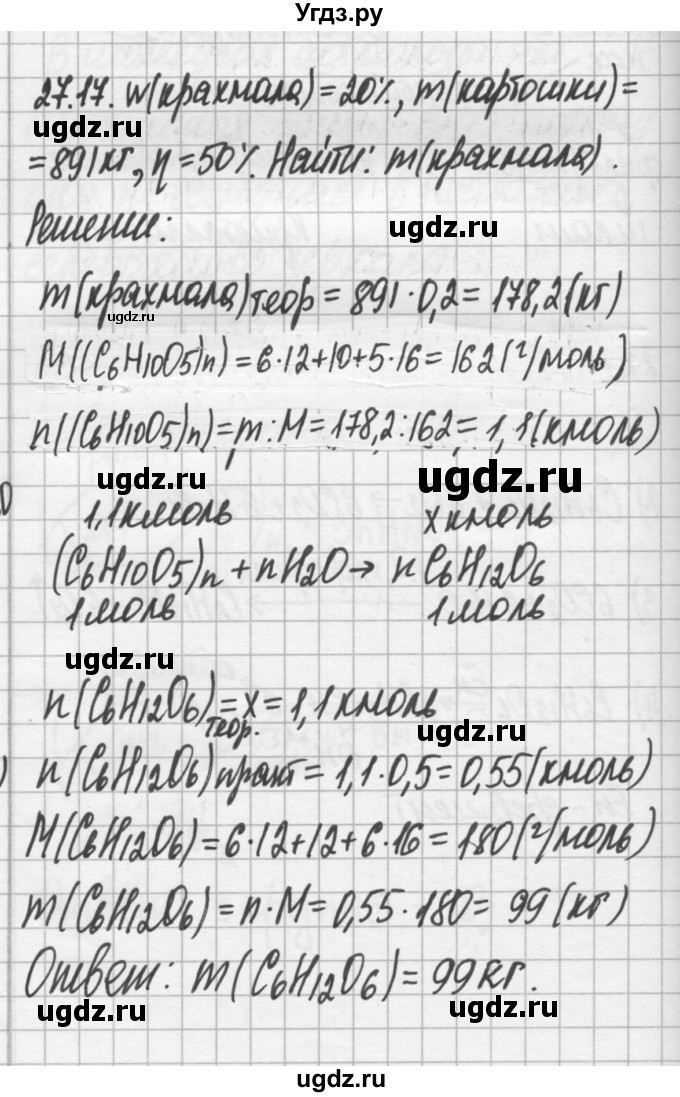 Угдз.ру
27.17. w(крахмала)=20%, m(картошки)=
ugdz.ru
=891кг, η=50%. Найти: m(крахмала).
Решение:
ugdz.ru
m(крахмала)теор=891·0,2=178,2(кг)
ugdz.ru
M((C6H10O5)n)=6·12+10+5·16=162(г/моль)
n((C6H10O5)n)=m:M=178,2:162=1,1(кмоль)
ugdz.ru
1,1кмоль x кмоль
(C6H10O5)n+nH2O→ nC6H12O6
1моль 1моль
ugdz.ru
n(C6H12O6)теор.=x=1,1кмоль
ugdz.ru
n(C6H12O6)практ=1,1·0,5=0,55(кмоль)
M(C6H12O6)=6·12+12+6·16=180(г/моль)
m(C6H12O6)=n·M=0,55·180= 99(кг)
Ответ: m(C6H12O6)=99кг.
ugdz.ru ugdz.ru
ugdz.ru